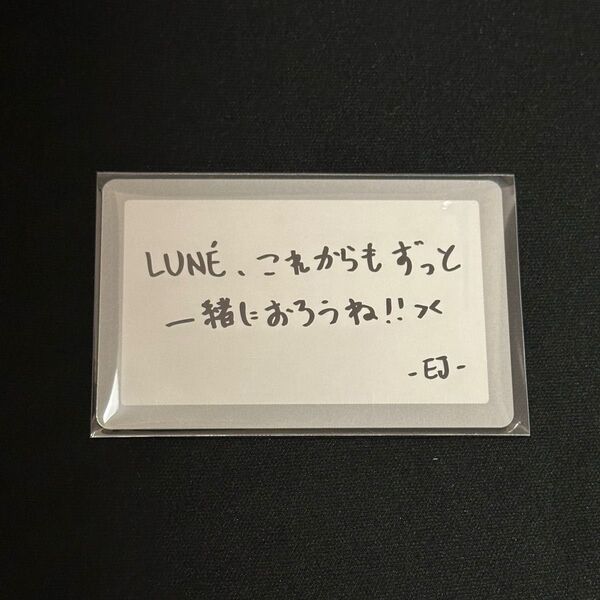 LUNÉ、これからもずっと
一緒におろうね!! ><
-EJ-